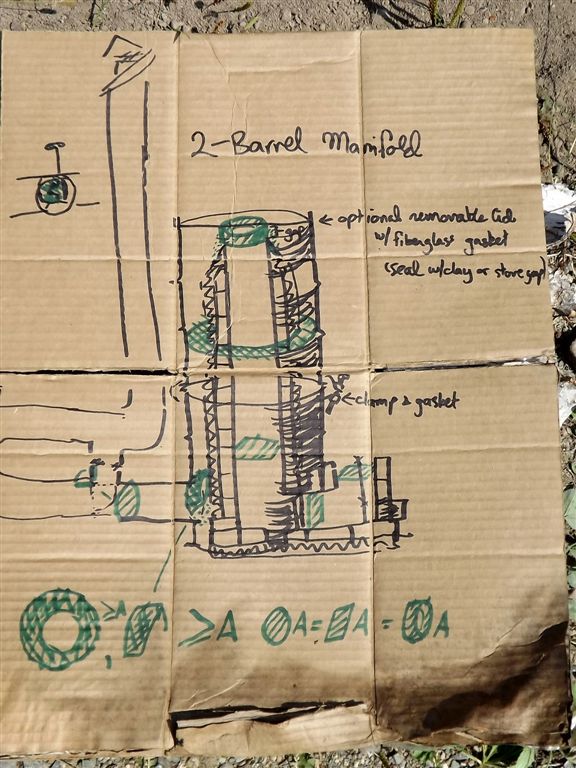 2-Barrel Manifold
← optional removable lid
w/ fiberglass gasket
(seal w/clay or stove gap)
gap
← clamp & gasket
≥A
≥A
A=
A =
A